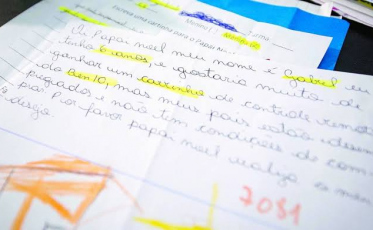 Escreva uma cartinha para o Papai
Oi Papai noel meu nome é Gabriel eu
tenho 6 anos, e gostaria muito de
ganhar um carrinho de controle remoto
do Ben 10, mas meus pais estão desem
pregados e não tem condições de com
prar Por favor papai noel realize o meu
desejo
7081